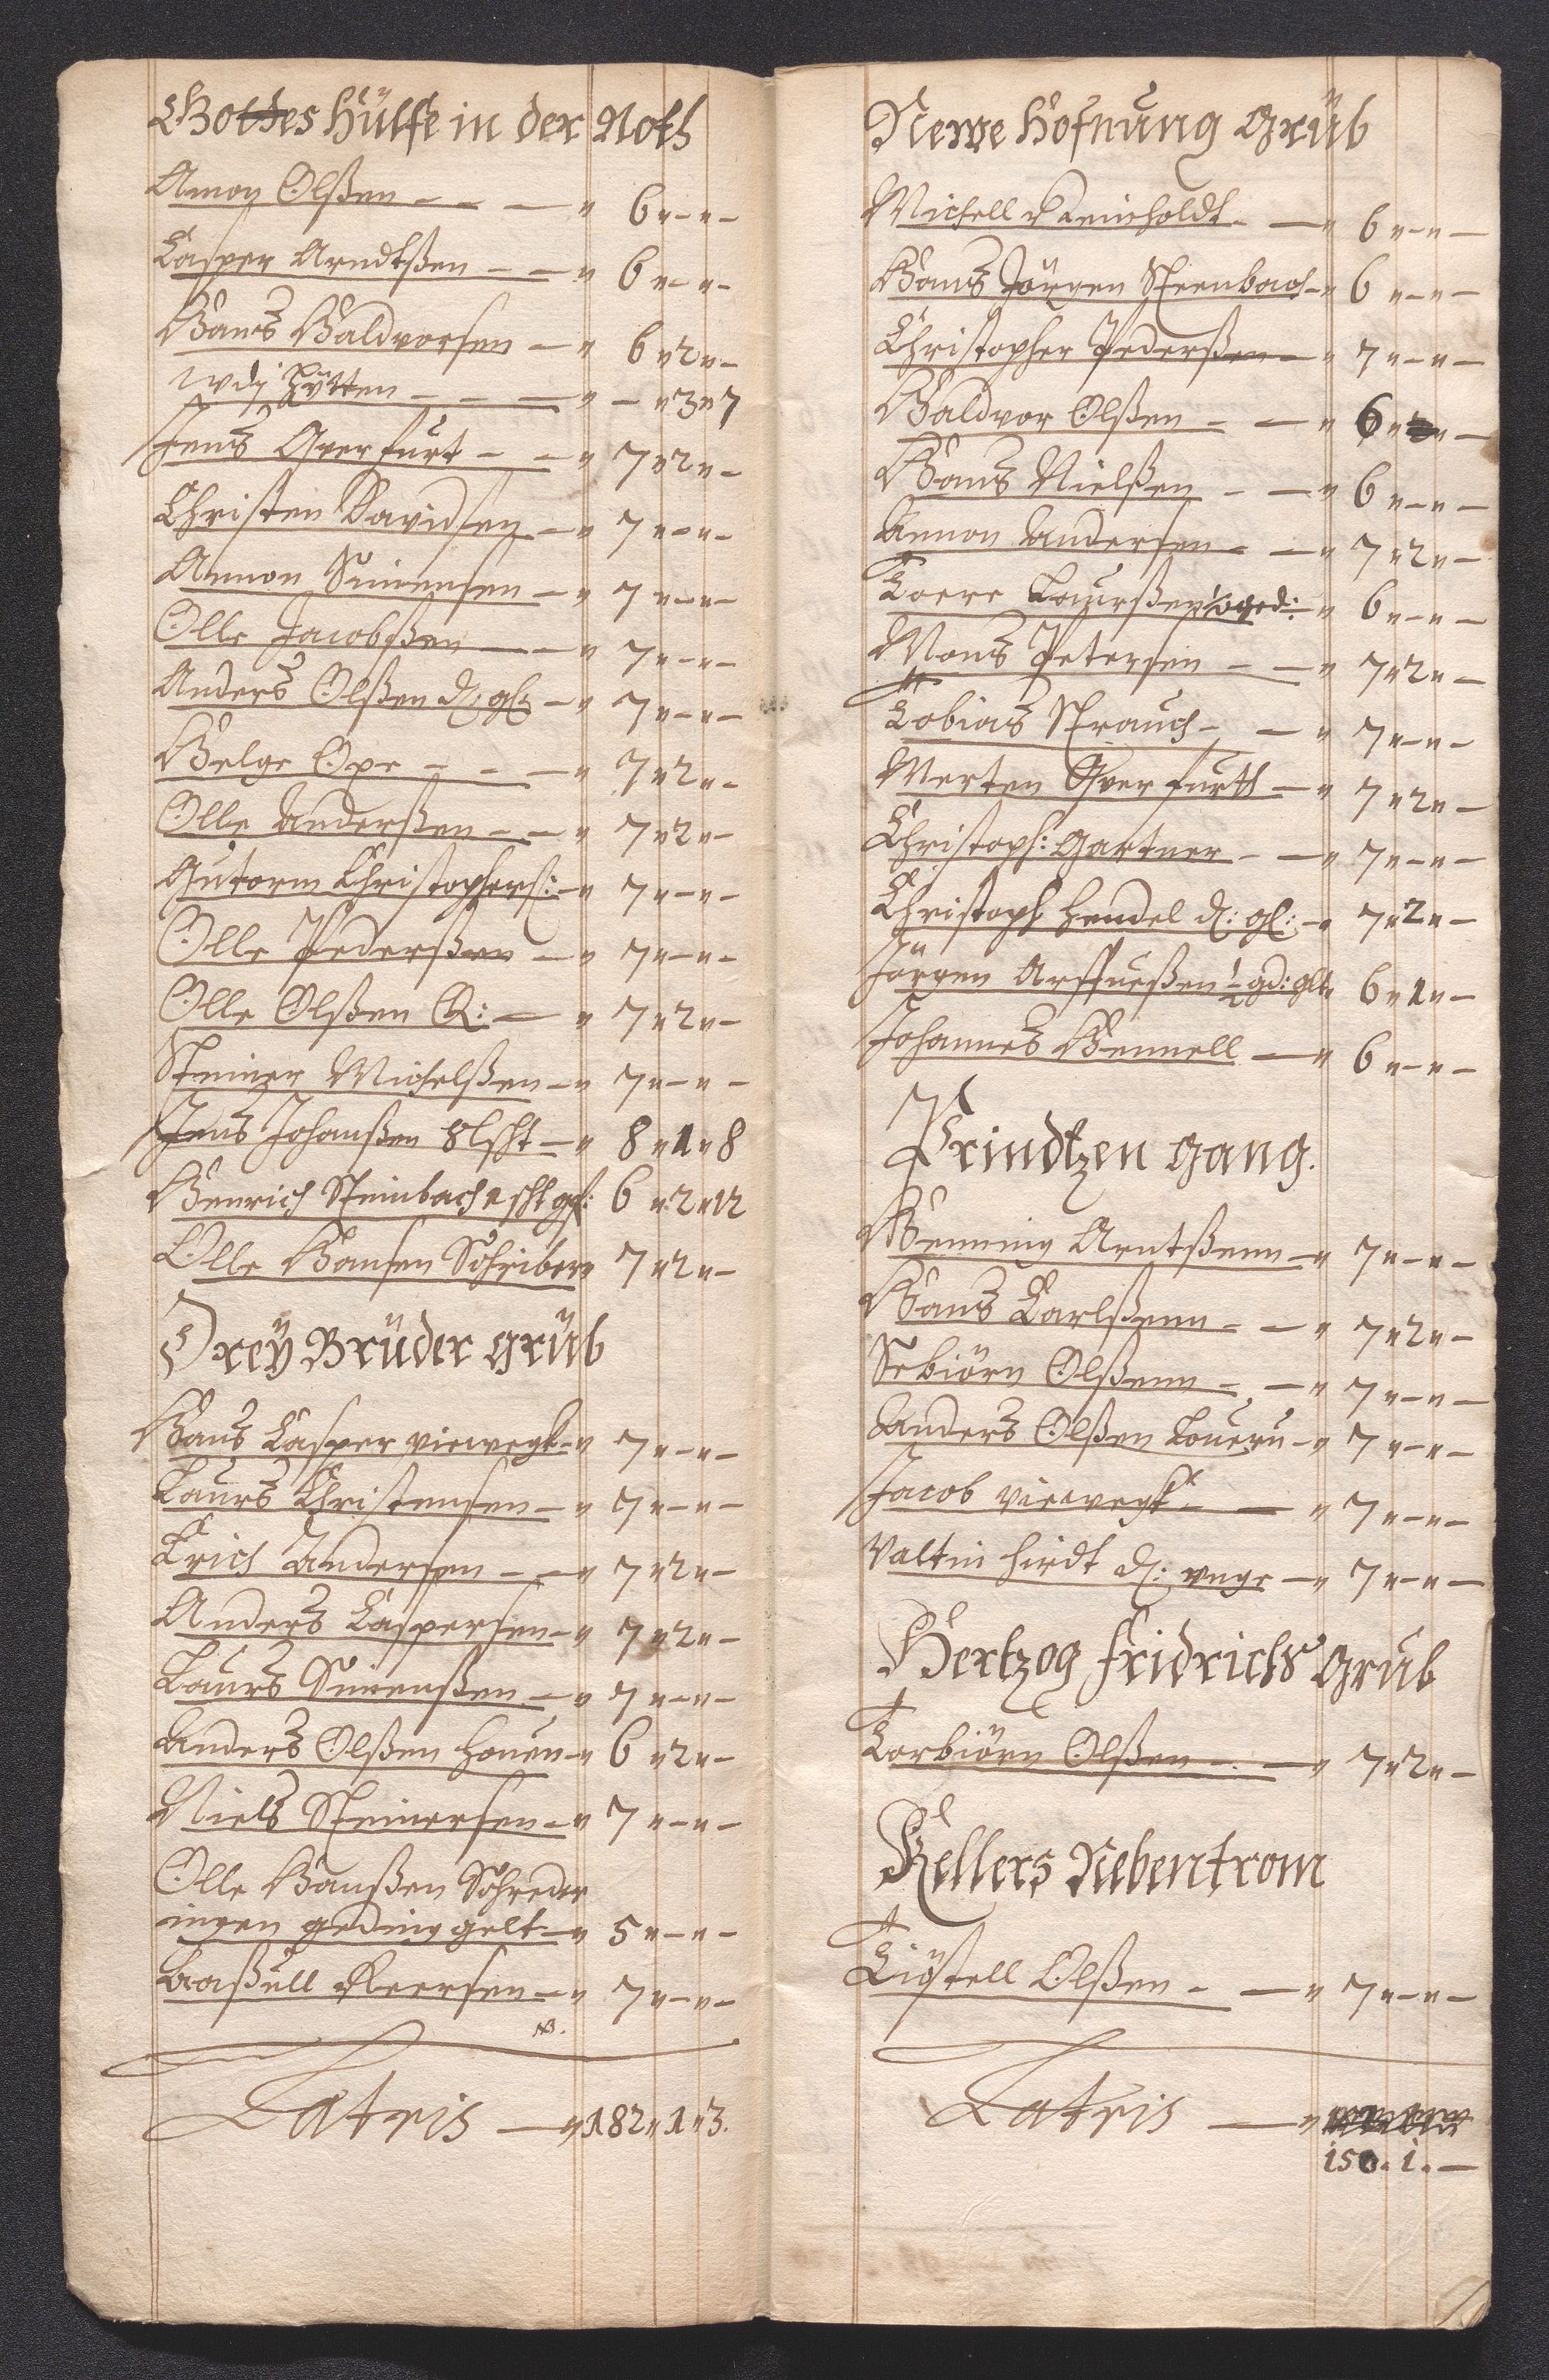 Gottes Hülffe in der Noth
Amon Olßen - - - " 6 " - " -
Casper Arndtßen - - " 6 " - " -
Hans Haldvorsen - " 6 " 2 " -
wdj Hÿtten - - - " - " 3 " 7
Jens Qverfurt - - " 7 " 2 " -
Christen Davidsen - " 7 " - " -
Ammon Simensen - " 7 " - " -
Olle Jacobßen - " 7 " - " -
Anders Olßen d: gl: - " 7 " - " -
Helge Ope - - - " 7 " 2 " -
Olle Anderßen - - " 7 " 2 " -
Gutorm Christophers: - " 7 " - " -
Olle Pederßen - " 7 " - " -
Olle Olßen R: - " 7 " 2 " -
Steiner Michelßen - " 7 " - " -
Jens Johanßen 8 lßht - " 8 " 1 " 8
Henrich Steinbach 2 sht gl: 6 " 2 " 12
Olle Hansen Schriber " 7 " 2 " -
Dreÿ Brüder Grüb
Hans Casper Vieweegh - " 7 " - " -
Laurs Christensen - " 7 " - " -
Erich Andersen - - " 7 " 2 " -
Anders Caspersen - " 7 " 2 " -
Laurs Simenßen - " 7 " - " -
Anders Olßen Houen - " 6 " 2 " -
Niels Steinersen - " 7 " - " -
Olle Hanßen Schreder
ingen geding gelt - " 5 " - " -
Laßuell Reersen - " 7 " - " -
NB.
Latris - " 182 " 1 " 3.
Newe Hofnung Grüb
Michell Reinholdt - - " 6 " - " -
Hans Jörgen Steenbach - " 6 " - " -
Christopher Pederßen - " 7 " - " -
Haldvor Olßen - - " 6 " - " -
Hans Nielßen - - " 6 " - " -
Ammon Andersen - - " 7 " 2 " -
Torre Laurßen ged: - " 6 " - " -
Mons Petersen - - " 7 " 2 " -
Tobias Strauch - - " 7 " - " -
Merten Qverfurth - " 7 " 2 " -
Christoph: Gartner - - " 7 " - " -
Christoph Hendel d: gl: - " 7 " 2 " -
Jörgen Arffueßen ½ gd: glt " 6 " 1 " -
Johannes Hennell - " 6 " - " -
Prindtzen Gang.
Henning Arntßenn - " 7 " - " -
Hans Carlßenn - - " 7 " 2 " -
Sebiörn Olßenn - - " 7 " - " -
Anders Olßen Louern - " 7 " - " -
Jacob Vieweegh - - " 7 " - " -
Valtin Hirdt d: unge - " 7 " - " -
Hertzog Fridrichs Grüb
Torbiörn Olßen - - " 7 " 2 " -
Kellers Nebentrom
Kiöstell Olßen - - " 7 " - " -
Latris - "
150. 1. -